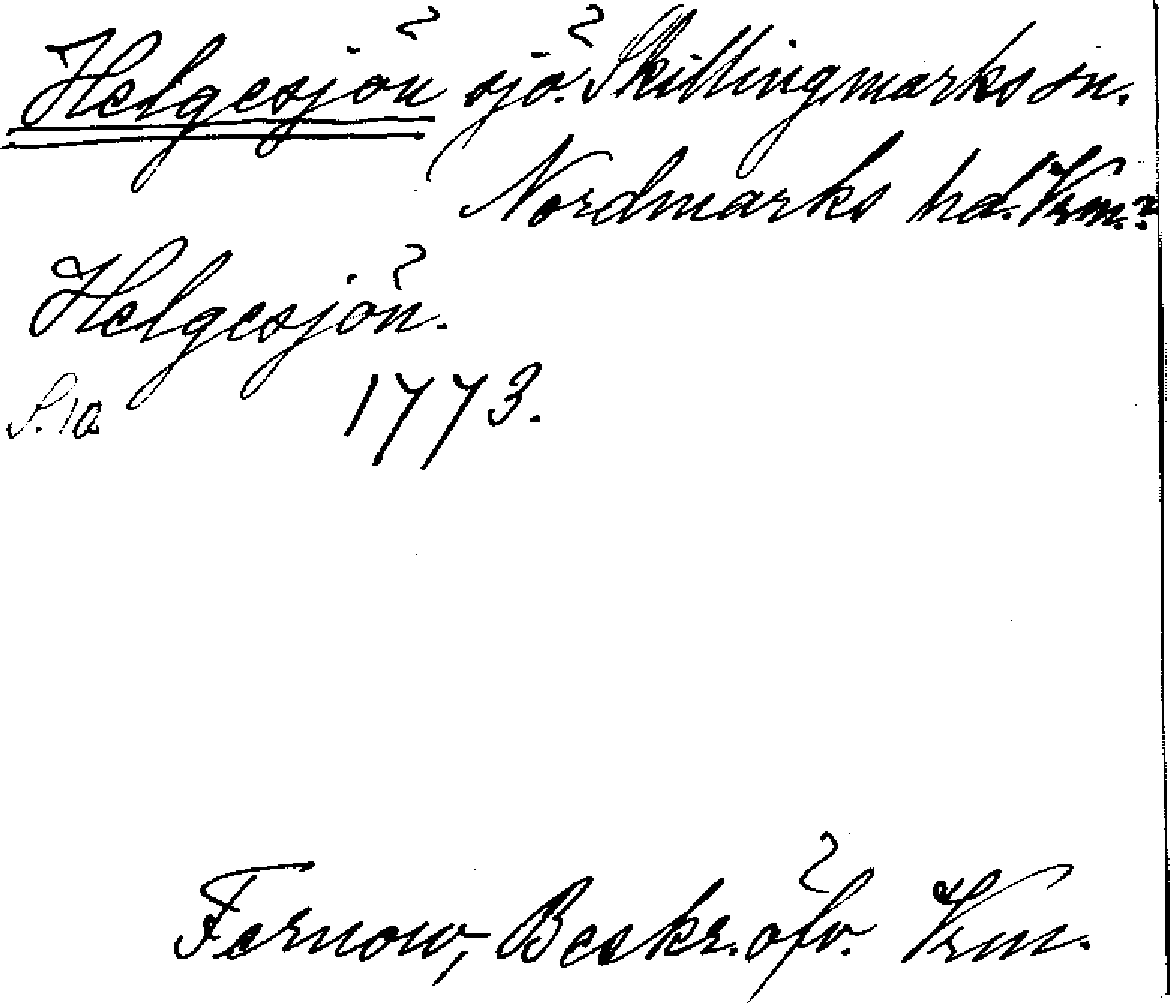 Helgesjön sjö. Skillingmarks sn.
Nordmarks hd. Vrm.
Helgesjön.
S. 10. 1773.
Fernow, Beskr. öfv. Vrm.